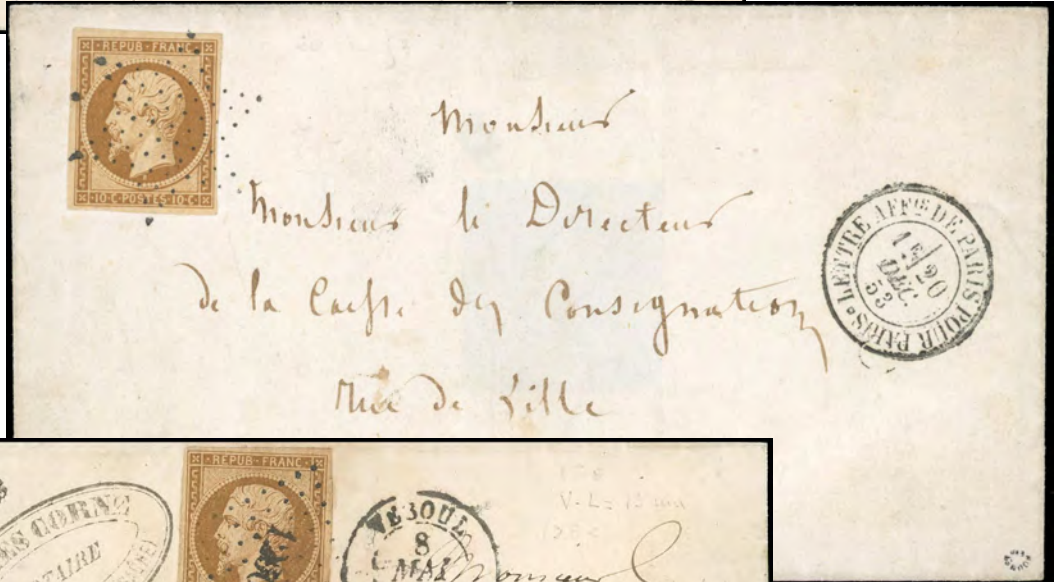 REPUB · FRANC ·
10 · C · POSTES · 10 · C
Monsieur
Monsieur le Directeur
de la Caisse des Consignations
rue de Lille
LETTRE AFFIE DE PARIS POUR PARIS
1E/20
DEC.
53
REPUB · FRANC ·
ES CORNE
TAIRE
VESOUL
8
MAI
Monsieur